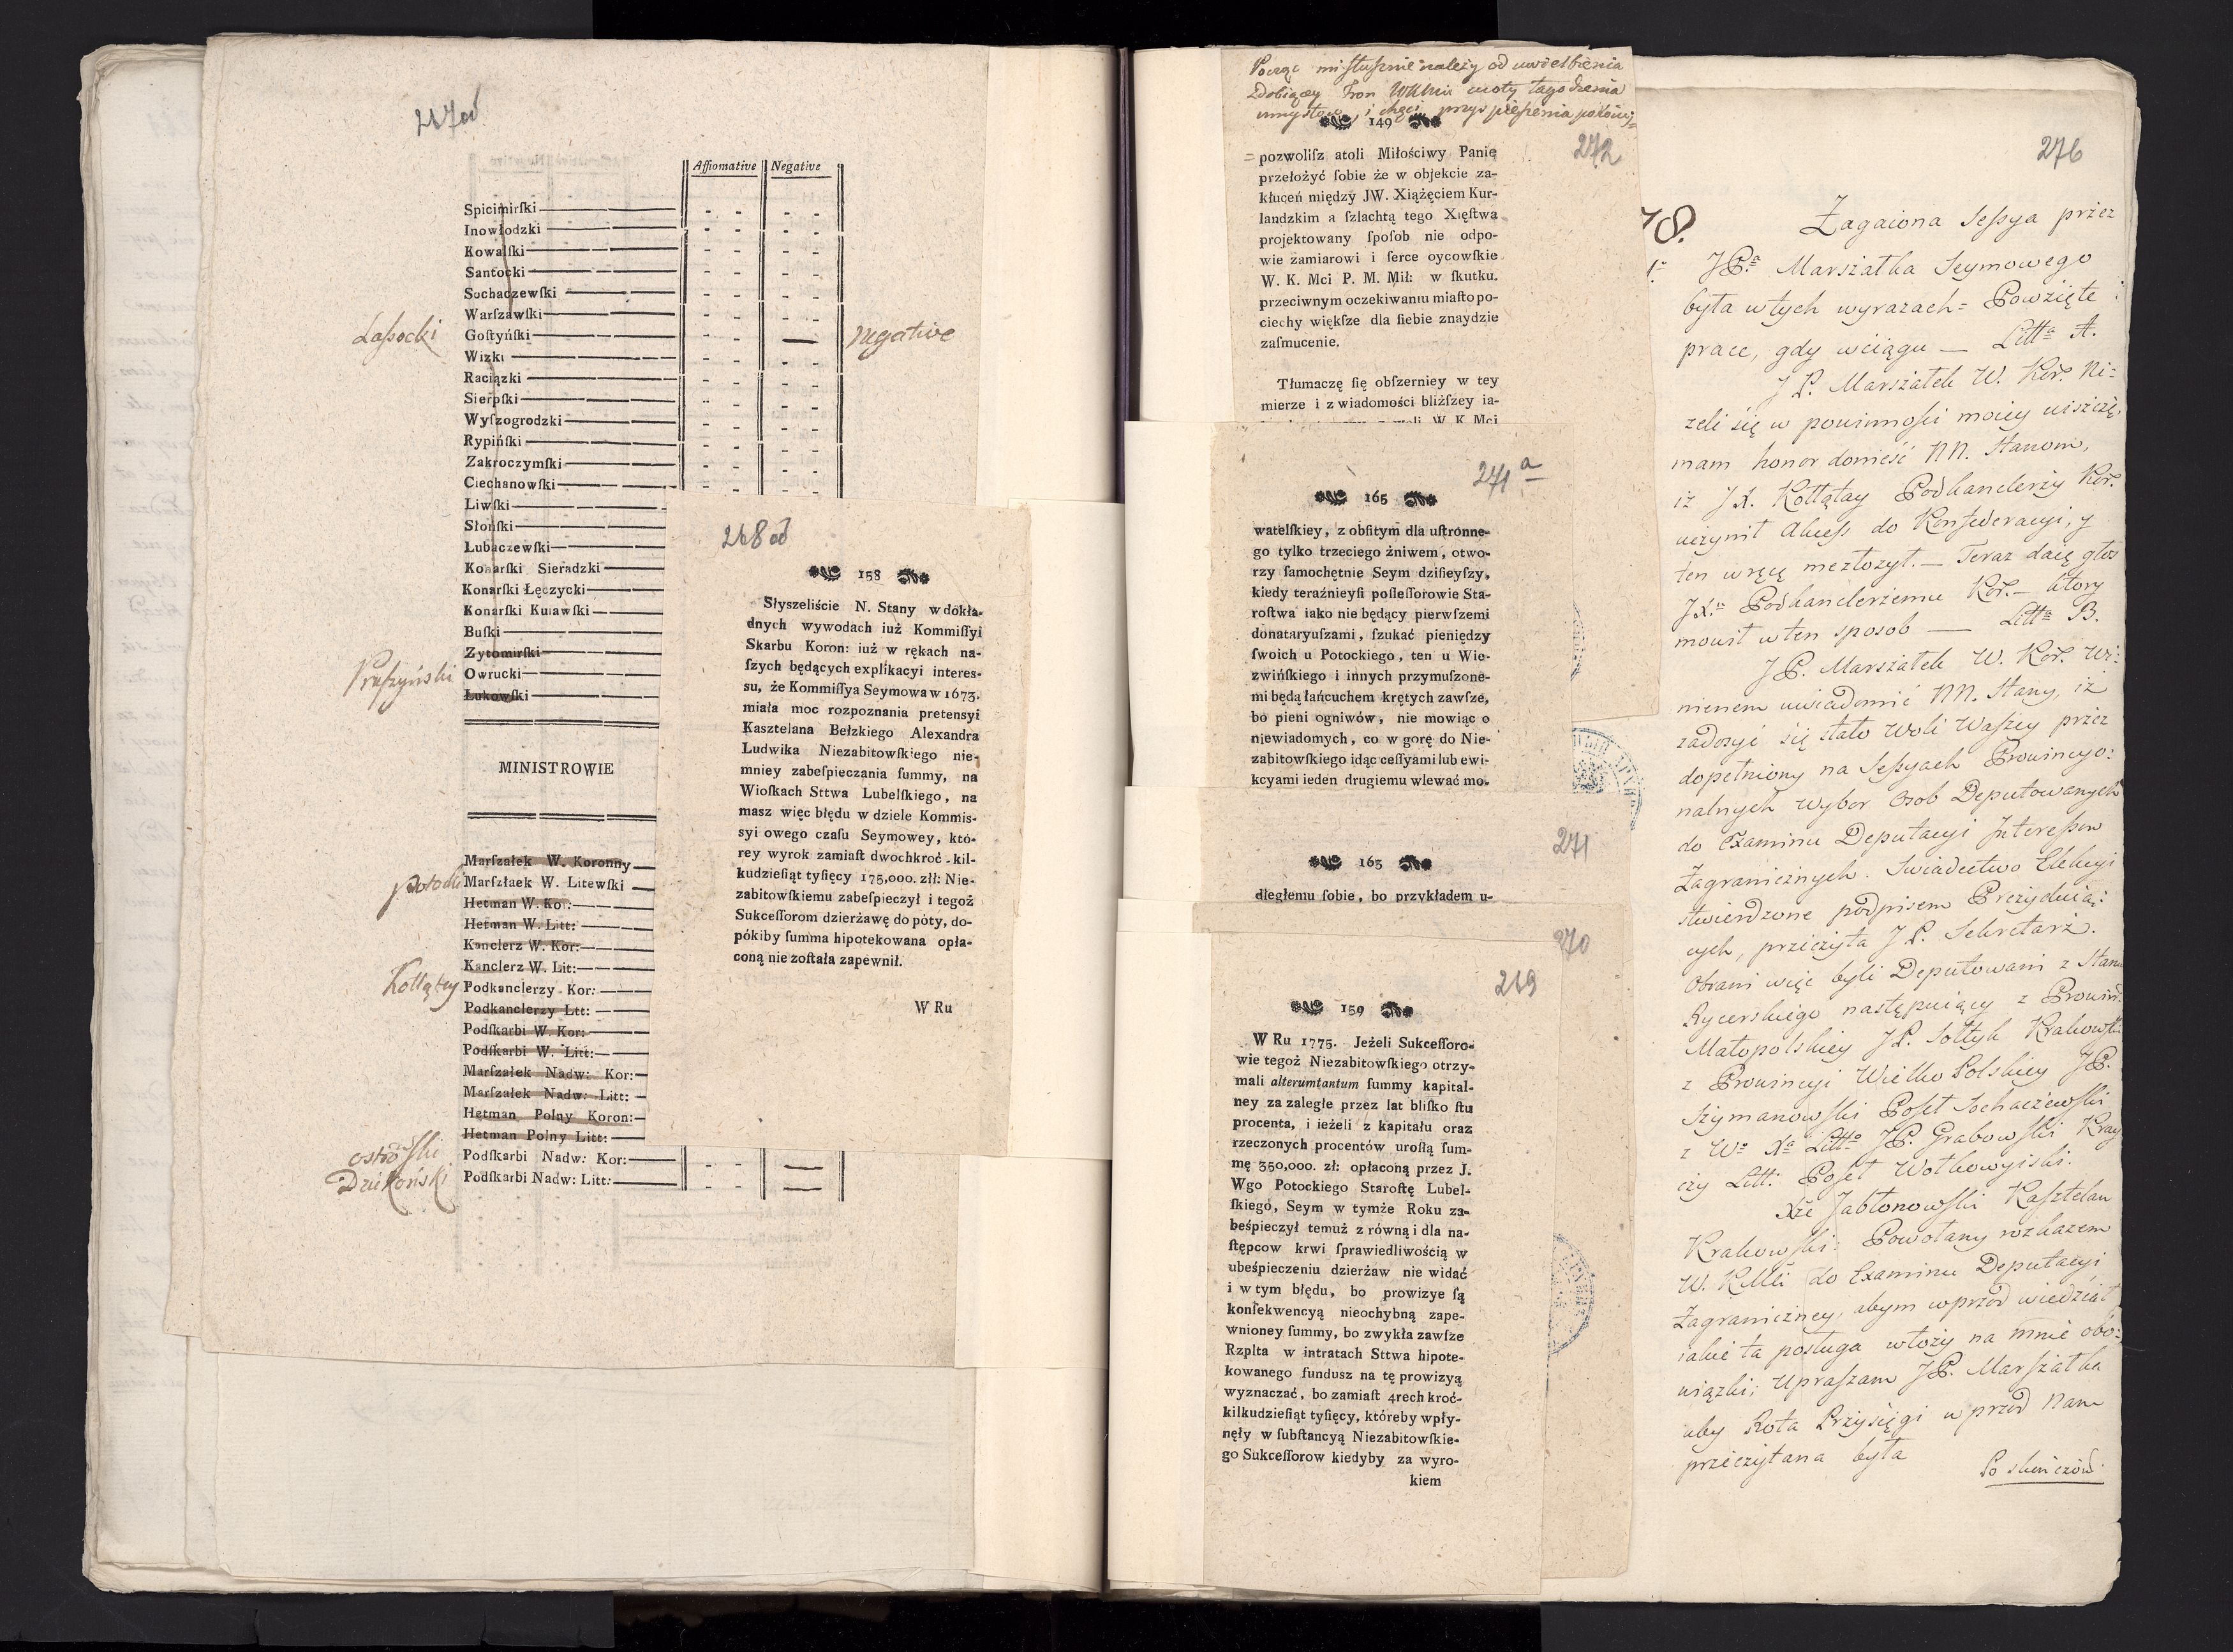 267od
Affiomative Negative
Spicimirſki
Inowłodzki
Kowalſki
Santocki
Sochaczewſki
Warſzawſki
Laſsocki Goſtyńſki negative
Wizki
Raciązki
Sierpſki
Wyſzogrodzki
Rypińſki
Zakroczymſki
Ciechanowſki
Liwſki
Słońſki
Lubaczewſki
Konarſki Sieradzki
Konarſki Łęczycki
Konarſki Kuiawſki
Buſki
Zytomirſki
Pruſzyński Owrucki
Łukowſki
MINISTROWIE
Marſzałek W. Koronny
Potocki Marſzłaek W. Litewſki
Hetman W. Kor:
Hetman W. Litt:
Kanclerz W. Kor:
Kanclerz W. Lit:
Kołłątay Podkanclerzy Kor:
Podkanclerzy Ltt:
Podſkarbi W. Kor:
Podſkarbi W. Litt:
Marſzałek Nadw: Kor:
Marſzałek Nadw: Litt:
Hetman Polny Koron:
Hetman Polny Litt:
Ostroſki Podſkarbi Nadw: Kor:
Dziekoński Podſkarbi Nadw: Litt:
268 od
158
Słyszeliście N. Stany w dokła-
dnych wywodach iuż Kommiſſyi
Skarbu Koron: iuż w rękach na-
ſzych będących explikacyi interes-
su, że Kommiſſya Seymowa w 1673.
miała moc rozpoznania pretensyi
Kasztelana Bełzkiego Alexandra
Ludwika Niezabitowſkiego nie-
mniey zabeſpieczania ſummy, na
Wioſkach Sttwa Lubelſkiego, na
masz więc błędu w dziele Kommis-
syi owego czaſu Seymowey, któ-
rey wyrok zamiaſt dwochkroć-kil-
kudzieſiąt tyſięcy 175,000. złł: Nie-
zabitowſkiemu zabeſpieczył i tegoż
Sukceſſorom dzierżawę do póty, do-
pókiby ſumma hipotekowana opła-
coną nie zoſtała zapewnił.
W Ru
Powagę należy od uwielbienia
Zdobiącey Tron WKMci cnoty łagodzenia
umysłow, i chęci przyspieſzenia
149
272
= pozwoliſz atoli Miłościwy Panie
przełożyć ſobie że w objekcie za-
kłuceń między JW. Xiążęciem Kur-
landzkim a ſzlachtą tego Xięſtwa
projektowany ſpoſob nie odpo-
wie zamiarowi i ſerce oycowſkie
W. K. Mci P. M. Mił: w ſkutku
przeciwnym oczekiwaniu miaſto po-
ciechy więkſze dla ſiebie znaydzie
zaſmucenie.
Tłumaczę ſię obſzerniey w tey
mierze i z wiadomości bliżſzey ia-
W K Mci
271 a
165
watelſkiey, z obfitym dla uſtronne-
go tylko trzeciego żniwem, otwo-
rzy ſamochętnie Seym dziſieyſzy,
kiedy teraźnieyſi poſſeſſorowie Sta-
roſtwa iako nie będący pierwſzemi
donataryuſzami, ſzukać pieniędzy
ſwoich u Potockiego, ten u Wie-
zwińſkiego i innych przymuſzone-
mi będą łańcuchem krętych zawſze,
bo pieni ogniwów, nie mowiąc o
niewiadomych, co w gorę do Nie-
zabitowſkiego idąc ceſſyami lub ewi-
kcyami ieden drugiemu wlewać mo-
271
163
dległemu ſobie, bo przykładem u-
270
269
159
W Ru 1775. Jeżeli Sukceſſoro-
wie tegoż Niezabitowſkiego otrzy-
mali alterumtantum ſummy kapital-
ney za zaległe przez lat bliſko ſtu
procenta, i ieżeli z kapitału oraz
rzeczonych procentów uroſłą ſum-
mę 350,000. zł: opłaconą przez J.
Wgo Potockiego Staroſtę Lubel-
ſkiego, Seym w tymże Roku za-
beśpieczył temuż z równą i dla na-
ſtępcow krwi ſprawiedliwością w
ubeśpieczeniu dzierżaw nie widać
i w tym błędu, bo prowizye ſą
konſekwencyą nieochybną zape-
wnioney ſummy, bo zwykła zawſze
Rzplta w intratach Sttwa hipote-
kowanego fundusz na tę prowizyą
wyznaczać, bo zamiaſt 4rech kroć-
kilkudzieſiąt tyſięcy, któreby wpły-
nęły w ſubſtancyą Niezabitowſkie-
go Sukceſſorow kiedyby za wyro-
kiem
276
78. Zagaiona Seſsya przez
JPa Marszałka Seymowego
była w tych wyrazach = Powzięte
prace, gdy wciągu — Litta A.
J P. Marszałek W. Kor. Ni-
zeli się w powinności moiey uiszczę,
mam honor donieść NN. Stanom,
iż JX. Kołłątay Podkanclerzy Kor.
uczynił Akceſs do Konfederacyi, y
ten w ręcę me złożył. — Teraz daię głos
JXu Podkanclerzemu Kor. — ktory
mowił w ten sposob — Litta B.
JP. Marszałek W. Kor. Wi-
nienem uwiadomić NN. Stany, iż
zadosyć się stało woli Waſzey przez
dopełniony na Seſsyach Prowincyo-
nalnych wybor Osob Deputowanych
do Examinu Deputacyi Intereſsow
Zagranicznych. Swiadectwo Elekcyi
stwierdzone podpisem Prezyduią-
cych, przeczyta J P. Sekretarz.
Obrani więc byli Deputowani z Stanu
Rycerskiego następuiący z Prowin:
Małopolskiey JP. Sołtyk Krakowski
z Prowincyi Wielko Polskiey JP.
Szymanowſki Poseł Sochaczewſki
z Wo Xa Litto JP. Grabowſki Kray
czy Litt: Poseł Wołkowyiski.
Xże Jabłonowſki Kaſztelan
Krakowſki: Powołany rozkazem
W. KMci do Examinu Deputacyi
Zagraniczney, abym wprzod wiedział
iakie ta posługa włoży na mnie obo-
wiązki; Upraſzam JP. Marſzałka
aby Rota Przysięgi w przod Nam
przeczytana była
Po skończoń: